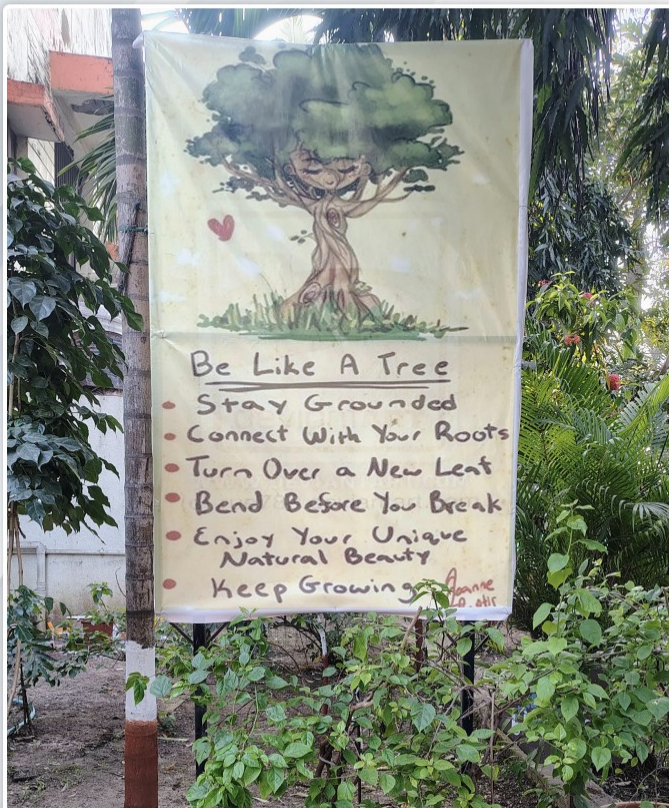 Be Like A Tree
• Stay Grounded
• Connect With Your Roots
• Turn Over a New Leaf
• Bend Before You Break
• Enjoy Your Unique
Natural Beauty
• Keep Growing
Joanne